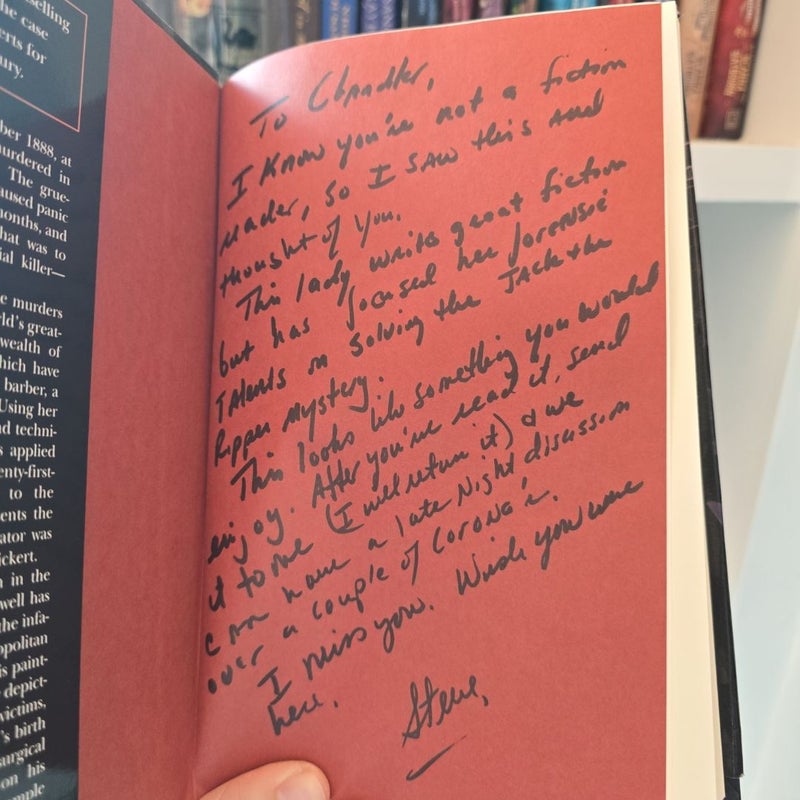 selling
he case
erts for
ury.
ber 1888, at
murdered in
The grue-
aused panic
months, and
hat was to
ial killer—
e murders
rld's great-
wealth of
hich have
barber, a
Using her
nd techni-
s applied
enty-first-
to the
ents the
ator was
ickert.
n in the
well has
the infa-
opolitan
is paint-
depict-
victims,
's birth
urgical
on his
mple
To Chandler,
I know you're not a fiction
reader, so I saw this and
thought of you.
This lady writes great fiction
but has focused her forensic
Talents on solving the Jack the
Ripper mystery.
This looks like something you would
enjoy. After you've read it, send
it to me (I will return it) & we
can have a late night discussion
over a couple of Corona's.
I miss you. Wish you were
here.
Steve,